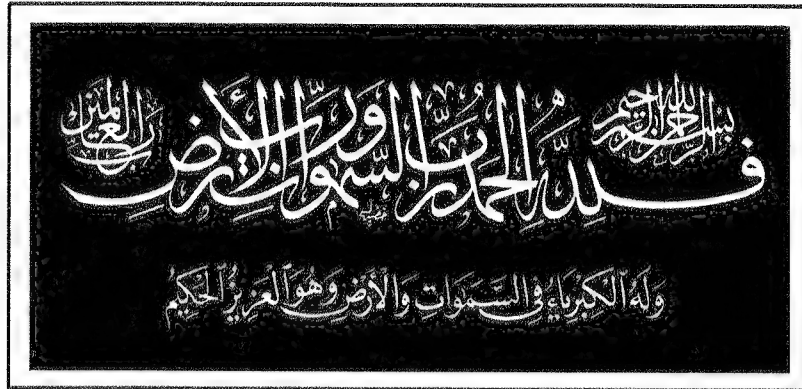 بسم الله الرحمن الرحيم
فلله الحمد رب السموات ورب الأرض رب العالمين
وَلَهُ ٱلْكِبْرِيَاءُ فِى السَّمَٰوَاتِ وَالْأَرْضِ وَهُوَ ٱلْعَزِيزُ ٱلْحَكِيمُ